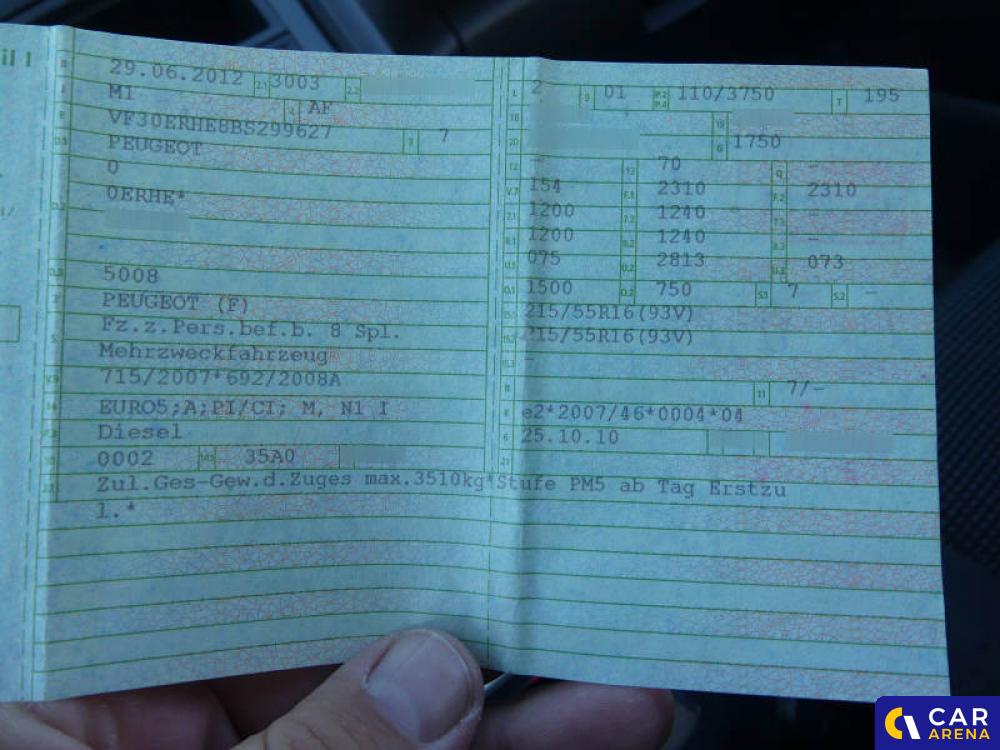 il I
B 29.06.2012 2.1 3003 2.2
J M1 4 AF
E VF30ERHE8BS299627 3 7
D.1 PEUGEOT
0
D.2 0ERHE*
D.3 5008
2 PEUGEOT (F)
5 Fz.z.Pers.bef.b. 8 Spl.
Mehrzweckfahrzeug
V.9 715/2007*692/2008A
14 EURO5;A;PI/CI; M, N1 I
P.3 Diesel
10 0002 14.1 35A0
22 Zul.Ges-Gew.d.Zuges max.3510kg*Stufe PM5 ab Tag Erstzu
l.*
L 2 9 01 P.2 P.4 110/3750 T 195
18 19
20 G 1750
12 - 13 70 Q -
V.7 154 F.1 2310 F.2 2310
7.1 1200 7.2 1240 7.3 -
8.1 1200 8.2 1240 8.3 -
U.1 075 U.2 2813 U.3 073
O.1 1500 O.2 750 S.1 7 S.2 -
15.1 215/55R16(93V)
15.2 215/55R16(93V)
15.3 -
R 11 7/-
K e2*2007/46*0004*04
6 25.10.10
21
CAR
ARENA